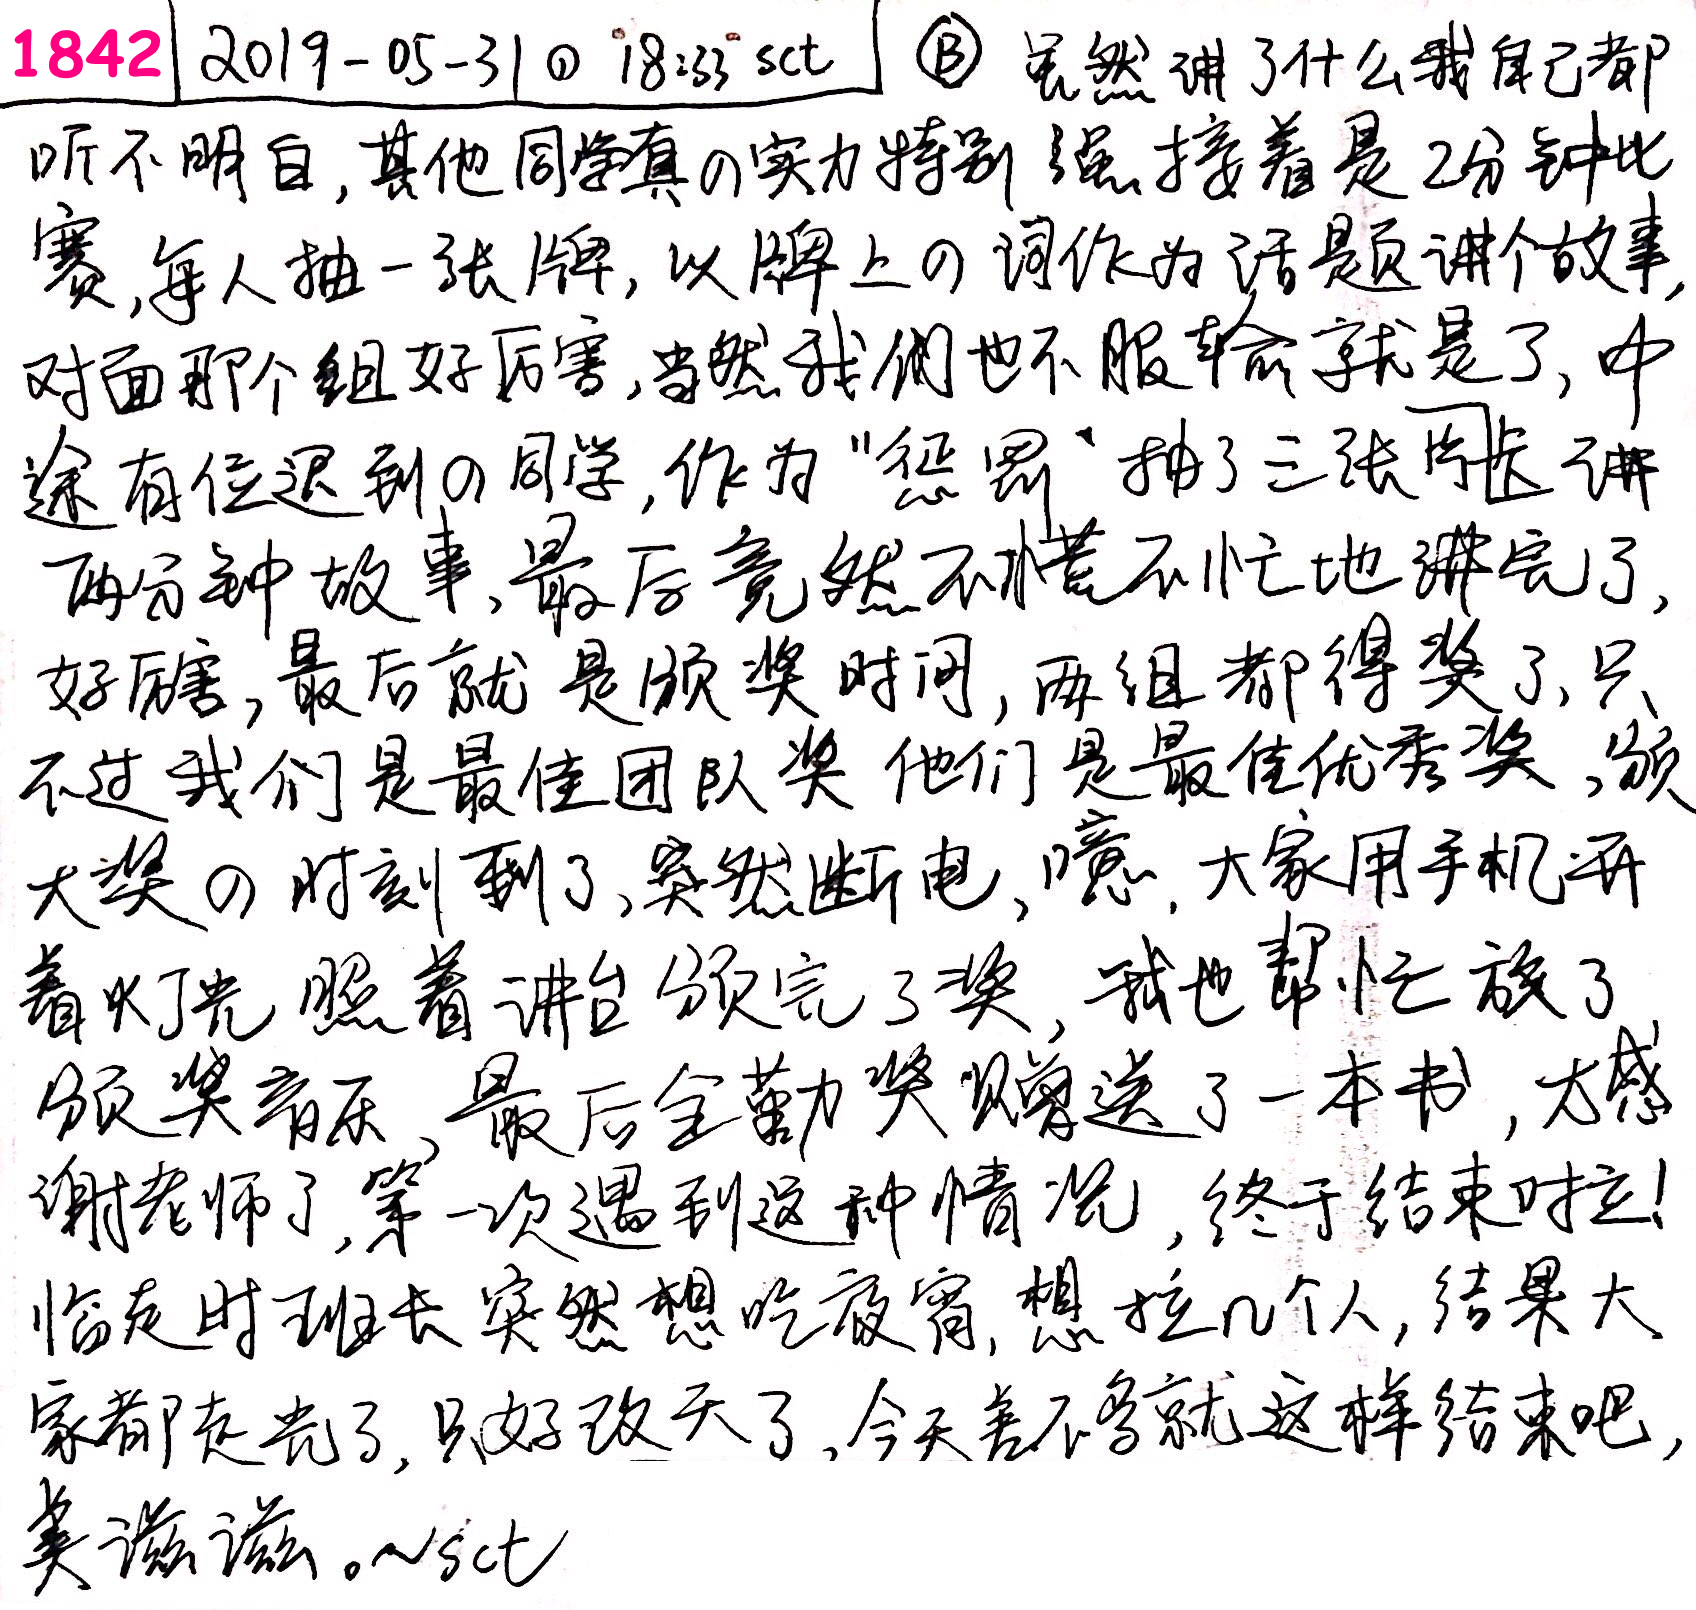 1842 2019-05-31① 18:33 sct Ⓑ 虽然讲了什么我自己都
听不明白,其他同学真の实力特别强.接着是2分钟比
赛,每人抽一张牌,以牌上の词作为话题讲个故事,
对面那个组好厉害,当然我们也不服输就是了,中
途有位迟到の同学,作为"惩罚"抽了三张卡片讲
两分钟故事,最后竟然不慌不忙地讲完了,
好厉害,最后就是颁奖时间,两组都得奖了,只
不过我们是最佳团队奖 他们是最佳优秀奖,颁
大奖の时刻到了,突然断电,噫,大家用手机开
着灯光照着讲台颁完了奖,我也帮忙放了
颁奖音乐,最后全勤奖赠送了一本书,太感
谢老师了,第一次遇到这种情况,终于结束时立!
临走时班长突然想吃夜宵,想拉几个人,结果大
家都走光了,只好改天了,今天差不多就这样结束吧,
美滋滋。~sct